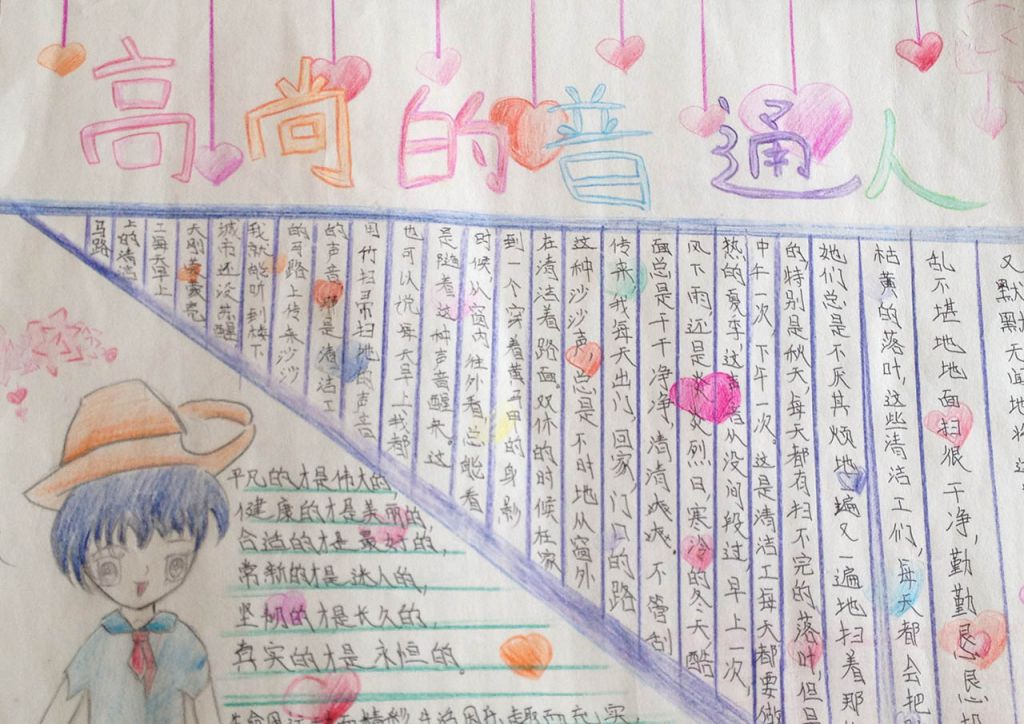 高尚的普通人
马路
上的清洁
工每天早上
天刚蒙蒙亮
城市还没苏醒
我就能听到楼下
的马路上传来沙沙
的声音,那是清洁工
用竹扫帚扫地的声音
也可以说每天早上我都
是随着这种声音醒来。这
时候,从窗内往外看,总能看
到一个穿着黄马甲的身影
在清洁着路面。双休的时候在家
这种沙沙声,总是不时地从窗外
传来,我每天出门,回家,门口的路
面总是干干净净,清清爽爽。不管刮
风下雨,还是炎炎烈日,寒冷的冬天酷
热的夏季这声音从没间段过,早上一次,
中午一次,下午一次。这是清洁工每天都要做
的特别是秋天,每天都有扫不完的落叶,但是
她们总是不厌其烦地一遍又一遍地扫着那
枯黄的落叶,这些清洁工们,每天都会把
乱不堪地地面扫很干净,勤勤恳恳
又默默无闻地
平凡的才是伟大的,
健康的才是美丽的,
合适的才是最好的,
常新的才是迷人的,
坚韧的才是长久的,
真实的才是永恒的。